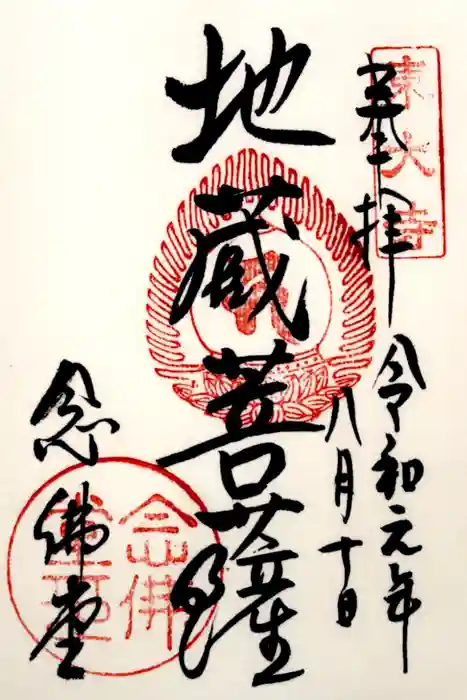 東大寺
奉拝
令和元年
八月十日
地蔵菩薩
念佛堂
念佛